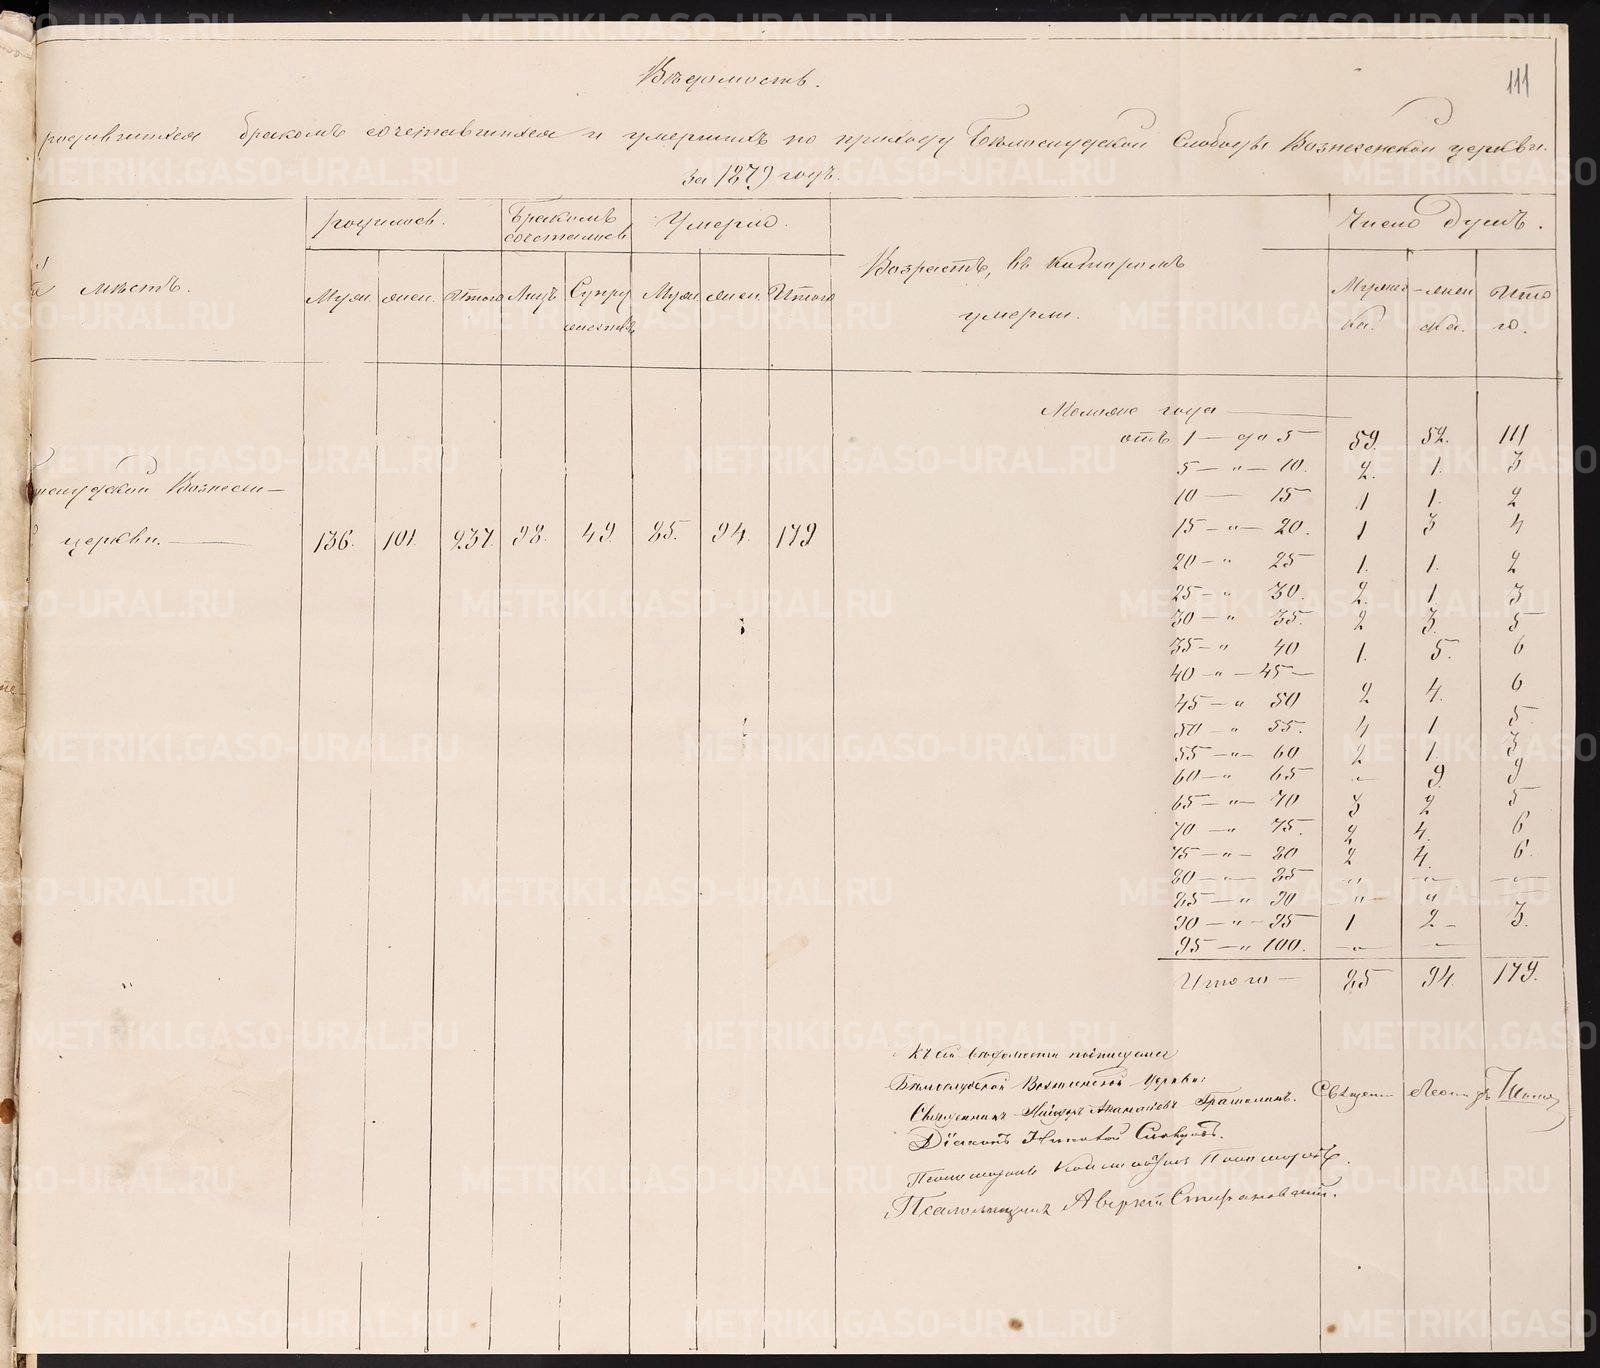 111
Вѣдомость.
родившихся бракомъ сочетавшихся и умершихъ по приходу Бѣлослудской Слободы Вознесенской церкви.
за 1879 годъ.
мѣстъ.
родилось.
Бракомъ сочеталось
Умерло.
Возрастъ, въ которомъ умерли.
Число душъ.
Муж. жен. Итого Лицъ Супружествъ Муж. жен. Итого
Мужеска. женска. Итого.
Моложе года —
отъ 1 — до 5 59. 52. 111
5 — " — 10. 2. 1. 3
10 — 15 1 1. 2
15 — " — 20. 1 3 4
20 — " 25 1. 1. 2
25 — " 30. 2. 1. 3
30 — " 35. 2 3. 5
35 — " 40 1. 5. 6
40 — " — 45 —
45 — " 50 2 4. 6
50 — " 55. 4 1 5.
55 — " — 60 2 1. 3
60 — " 65 " 9. 9
65 — " — 70 3 2 5
70 — " 75. 2 4. 6
75 — " — 80 2 4. 6.
80 — " — 85 " " "
85 — " 90 " "
90 — " — 95 1 2 — 3.
95 — " 100. " "
Итого — 85 94. 179.
Вознесен—
церкви. — 136. 101. 237. 98. 49. 85. 94. 179
Къ сей вѣдомости подписуемся
Бѣлослудской Вознесенской Церкви:
Священникъ
Діаконъ
Псаломщикъ
Псаломщикъ Аверкій Стефановскій.